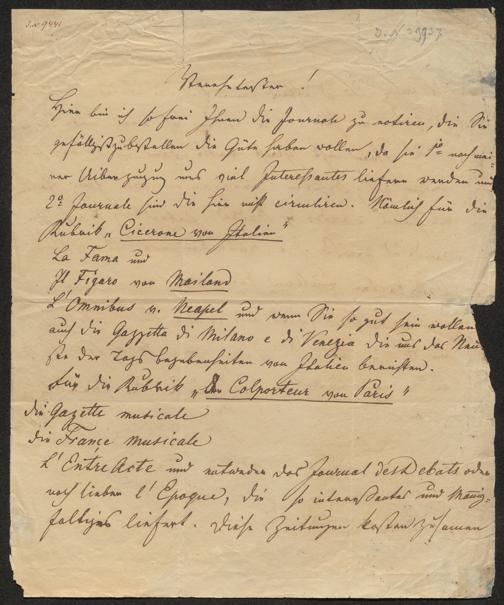 J.N. 9441
J. N 39937
Verehrtester!
Hier bin ich so frei Ihnen die Journale zu notiren, die Sie
gefälligst zu bestellen die Güte haben wollen, da sie 1º nach mei-
ner Überzeugung uns viel Interessantes liefern werden und
2º Journale sind die hier nicht circuliren. Nämlich für die
Rubrik „Cicerone von Italien"
La Fama und
Il Figaro von Mailand
L'Omnibus v. Neapel und wenn Sie so gut sein wollen
auch die Gazzetta di Milano e di Venezia die uns das Neue-
ste der Tagsbegebenheiten von Italien berichten.
Für die Rubrik „Der Colporteur von Paris"
die Gazette musicale
die France musicale
L'EntreActe und entweder das Journal des Debats oder
noch lieber l'Epoque, die so interessantes und Mannig-
faltiges liefert. Diese Zeitungen kosten zusamen